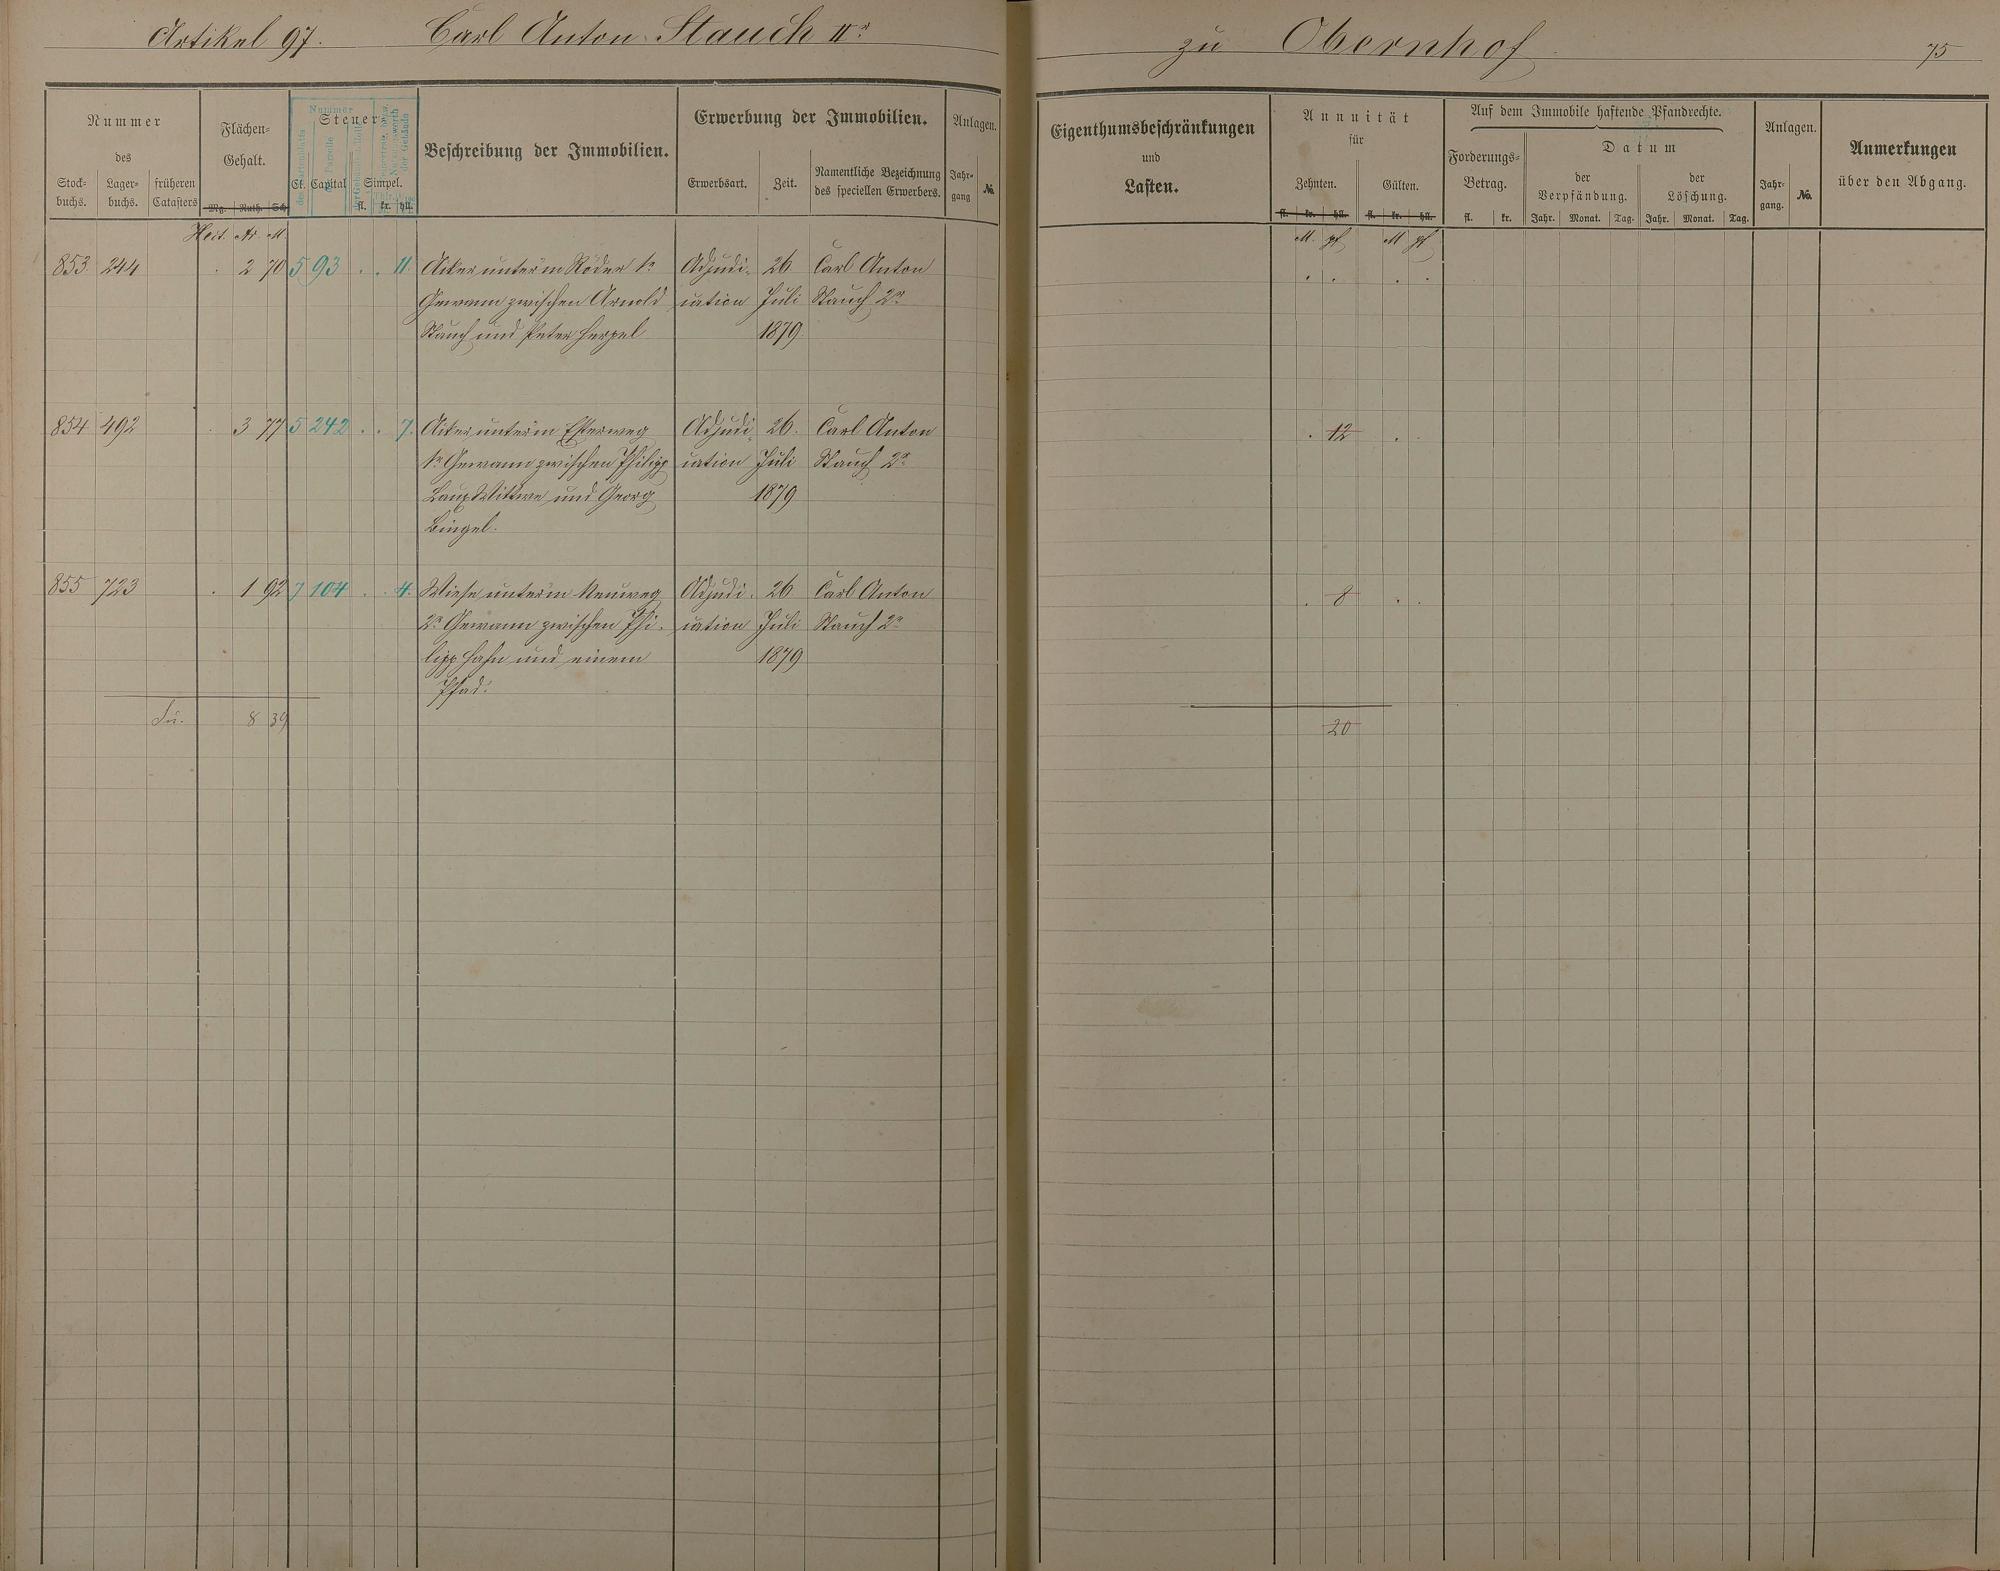 Artikel 97. Carl Anton Stauch IIr zu Obernhof 75
Nummer
des
Stock-
buchs.
Lager-
buchs.
früheren
Catasters
Flächen-
Gehalt.
Mg. Ruth. Sch
Nummer
Steuer
der Parzelle
der Gebäude
Cl. Capital
Simpel.
fl. kr. hll.
Beschreibung der Immobilien.
Erwerbung der Immobilien.
Erwerbsart.
Zeit.
Namentliche Bezeichnung
des speciellen Erwerbers.
Anlagen.
Jahr-
gang
No.
Eigenthumsbeschränkungen
und
Lasten.
Annuität
für
Zehnten.
Gülten.
fl. kr. hll. fl. kr. hll.
Auf dem Immobile haftende Pfandrechte.
Forderungs-
Betrag.
fl. kr.
Datum
der
Verpfändung.
der
Löschung.
Jahr. Monat. Tag. Jahr. Monat. Tag.
Anlagen.
Jahr-
gang.
No.
Anmerkungen
über den Abgang.
Hect. Ar. M. M. pf M pf
853 244 . 2 70 5 93 . . 11. Acker unter'm Röder 1r Adjudi- 26 Carl Anton
Gewann zwischen Arnold cation Juli Stauch 2r
Stauch und Peter Herpel 1879.
854 492 . 3 77 5 242 . . 7. Acker unter'm Esterweg Adjudi- 26. Carl Anton . 12 .
1r Gewann zwischen Philipp cation Juli Stauch 2r
Laux Wittwe und Georg 1879
Bingel.
855 723 . 1 92 7 104 . . 4. Wiese unter'm Neuweg Adjudi- 26 Carl Anton . 8 . .
2r Gewann zwischen Phi- cation Juli Stauch 2r
lipp Hahn und einem 1879
Pfad.
Su. 8 39 20